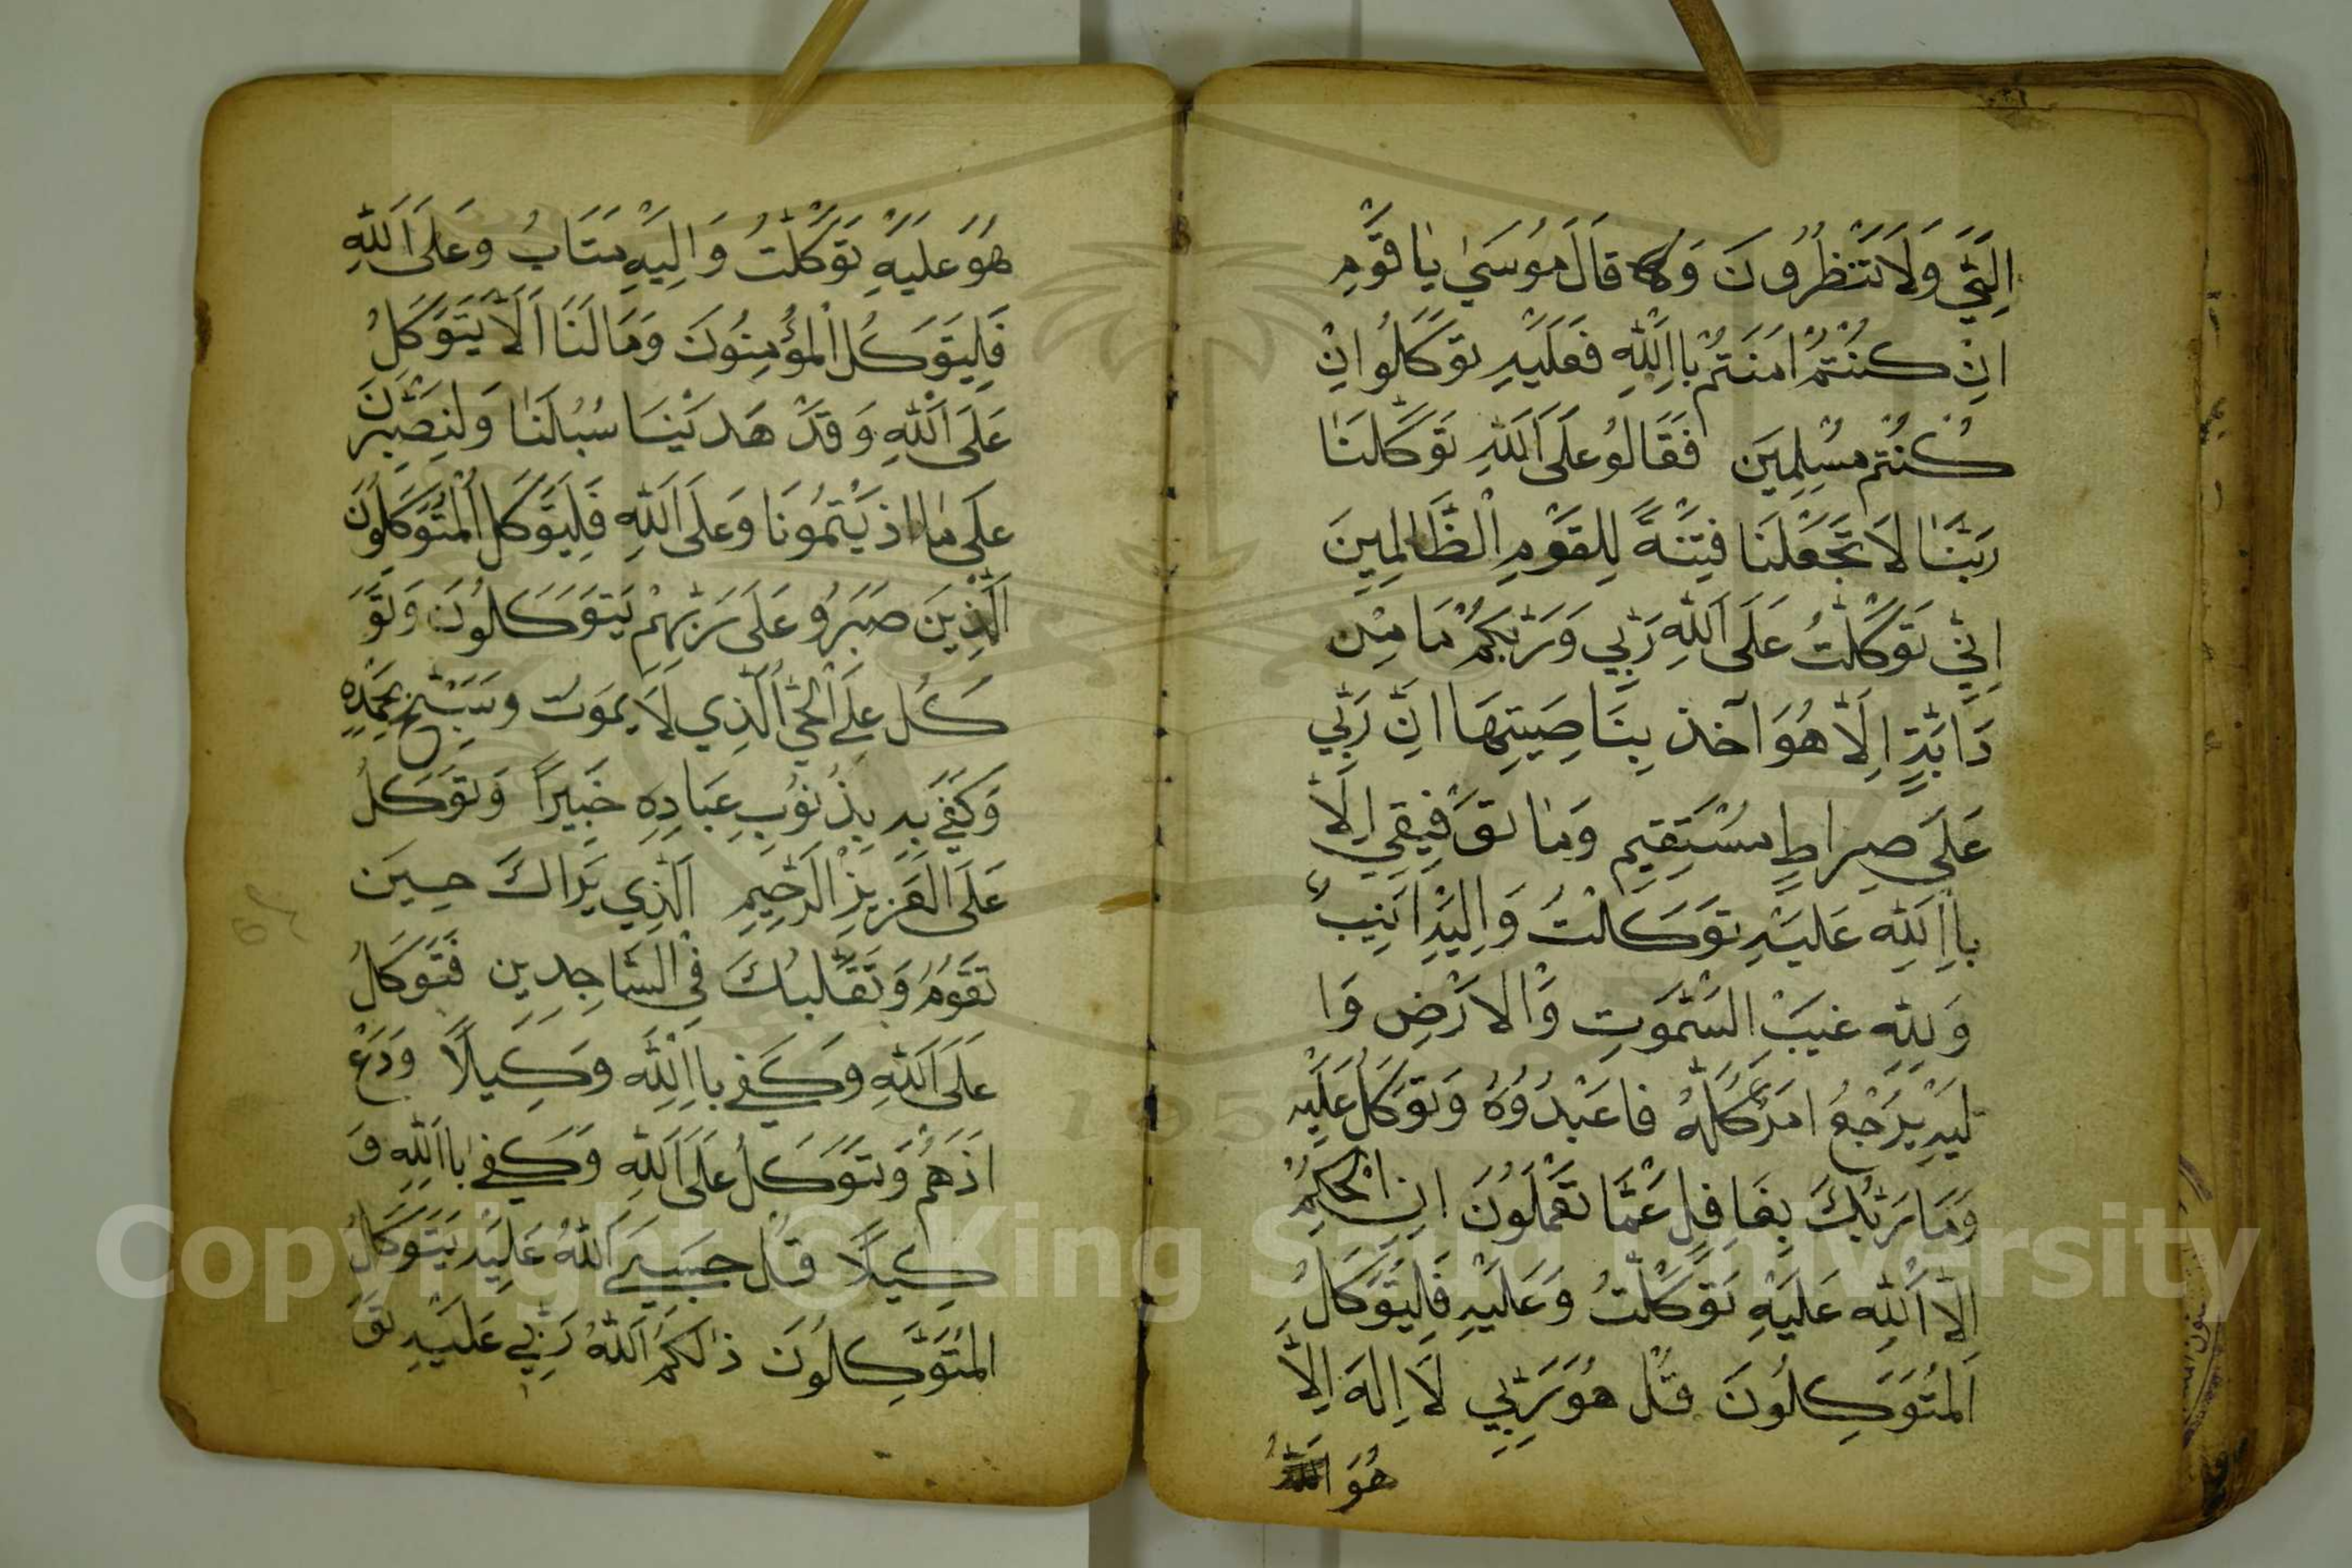 اِلَيَّ وَلَا تُنْظِرُونَ وَ قَالَ مُوسَىٰ يٰا قَوْمِ
اِنْ كُنْتُمْ اٰمَنْتُمْ بِااللّٰهِ فَعَلَيْهِ تَوَكَّلُوا اِنْ
كُنْتُمْ مُسْلِمِينَ فَقَالُوا عَلَى اللّٰهِ تَوَكَّلْنَا
رَبَّنَا لَا تَجْعَلْنَا فِتْنَةً لِلْقَوْمِ الْظَّالِمِينَ
اِنِّي تَوَكَّلْتُ عَلَى اللّٰهِ رَبِّي وَرَبِّكُمْ مَا مِنْ
دَابَّةٍ اِلَّا هُوَ آخذ بِنَاصِيَتِهَا اِنَّ رَبِّي
عَلَى صِرَاطٍ مُسْتَقِيمٍ وَمَا تَوْفِيقِي اِلَّا
بِااللّٰهِ عَلَيْهِ تَوَكَّلْتُ وَاِلَيْهِ اُنِيبُ
وَلِلّٰهِ غَيْبُ السَّمٰوَتِ وَالْاَرْضِ وَا
لَيْهِ يُرْجَعُ اَمْرُ كُلُّهُ فَاعْبُدُوهُ وَتَوَكَّلْ عَلَيْهِ
وَمَا رَبُّكَ بِغَافِلٍ عَمَّا تَعْمَلُونَ اِنِ الْحُكْمُ
اِلَّا اللّٰهِ عَلَيْهِ تَوَكَّلْتُ وَعَلَيْهِ فَلْيَتَوَكَّلِ
الْمُتَوَكِّلُونَ قُلْ هُوَ رَبِّي لَا اِلٰهَ اِلَّا
هُوَ
هُوَ عَلَيْهِ تَوَكَّلْتُ وَاِلَيْهِ مَتَابُ وَعَلَى اللّٰهِ
فَلْيَتَوَكَّلِ الْمُؤْمِنُونَ وَمَا لَنَا اَلَّا يَتَوَكَّلُ
عَلَى اللّٰهِ وَقَدْ هَدَيْنَا سُبُلَنَا وَلَنَصْبِرَنَّ
عَلَى مَا اذَيْتُمُونَا وَعَلَى اللّٰهِ فَلْيَتَوَكَّلِ الْمُتَوَكِّلُونَ
اَلَّذِينَ صَبَرُو عَلَى رَبِّهِمْ يَتَوَكَّلُونَ وَتَوَ
كَّلْ عَلَى الْحَيِّ الَّذِي لَا يَمُوتُ وَسَبِّحْ بِحَمْدِهِ
وَكَفَى بِهِ بِذُنُوبِ عِبَادِهِ خَبِيرًا وَتَوَكَّلْ
عَلَى الْعَزِيزِ الرَّحِيمِ اَلَّذِي يَرَاكَ حِينَ
تَقُومُ وَتَقَلُّبَكَ فِي السَّاجِدِينَ فَتَوَكَّلْ
عَلَى اللّٰهِ وَكَفَى بِااللّٰهِ وَكِيلًا وَدَعْ
اَذَهُمْ وَتَوَكَّلْ عَلَى اللّٰهِ وَكَفَى بِااللّٰهِ وَ
كِيلًا قُلْ حَسْبِيَ اللّٰهُ عَلَيْهِ يَتَوَكَّلُ
الْمُتَوَكِّلُونَ ذٰلِكُمُ اللّٰهُ رَبِّي عَلَيْهِ تَوَ
Copyright © King Saud University
1957